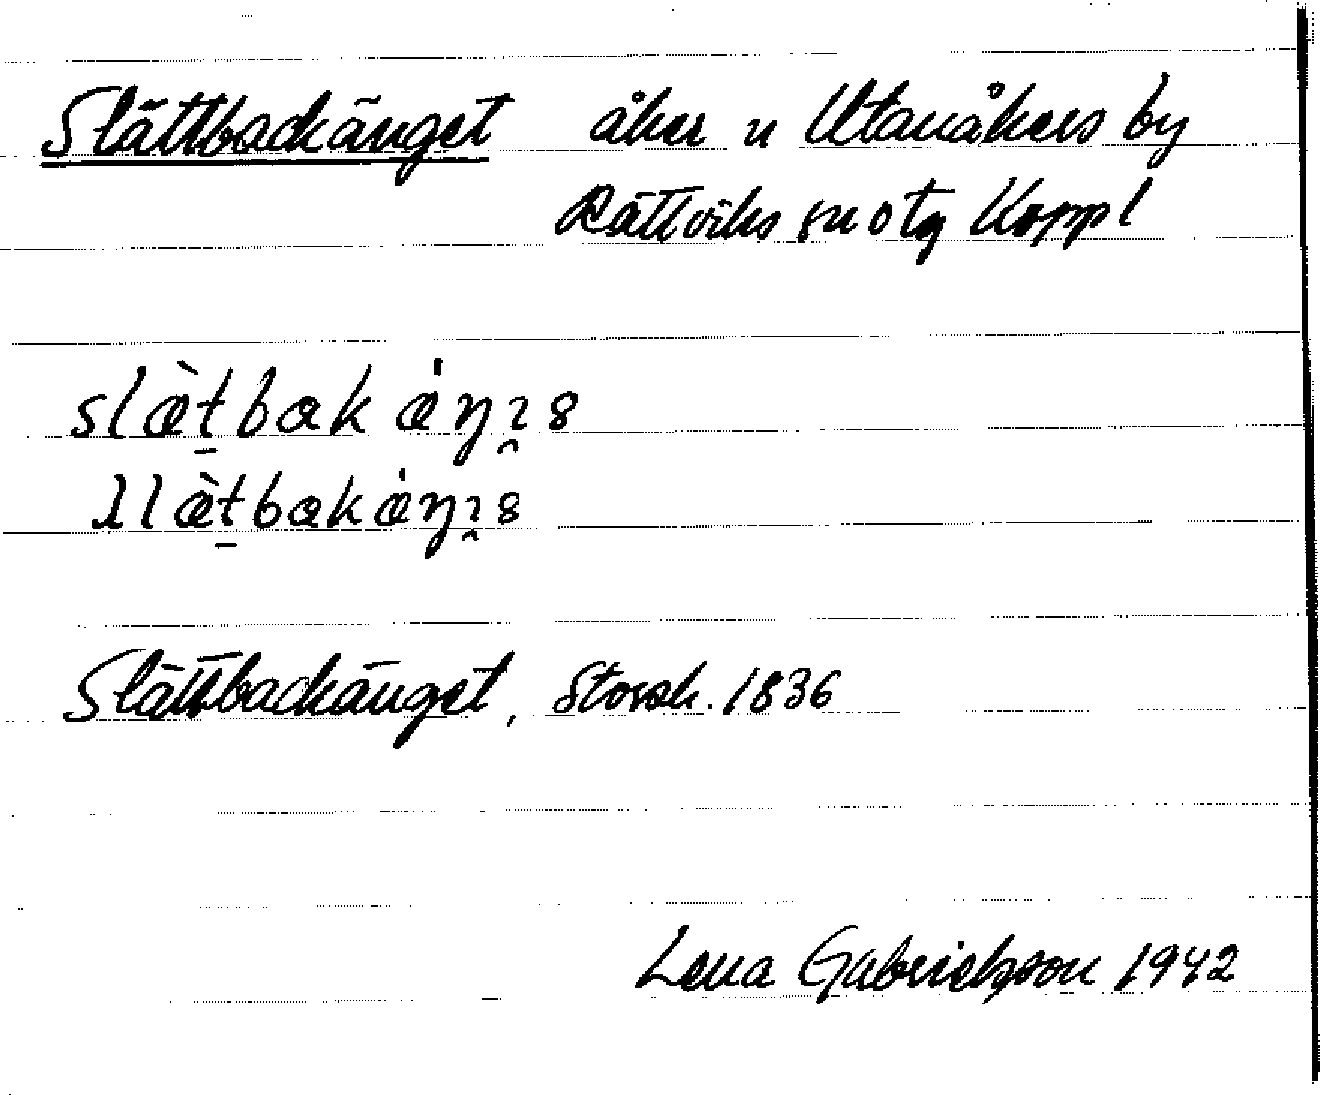 Slättbackänget åker u Utanåkers by
Rättviks sn o tg Koppl
slæ̀t̠bakæ̇ŋı̯s
llæ̀t̠bakæ̇ŋı̯s
Slättbackänget, Storsk. 1836
Lena Gabrielsson 1942